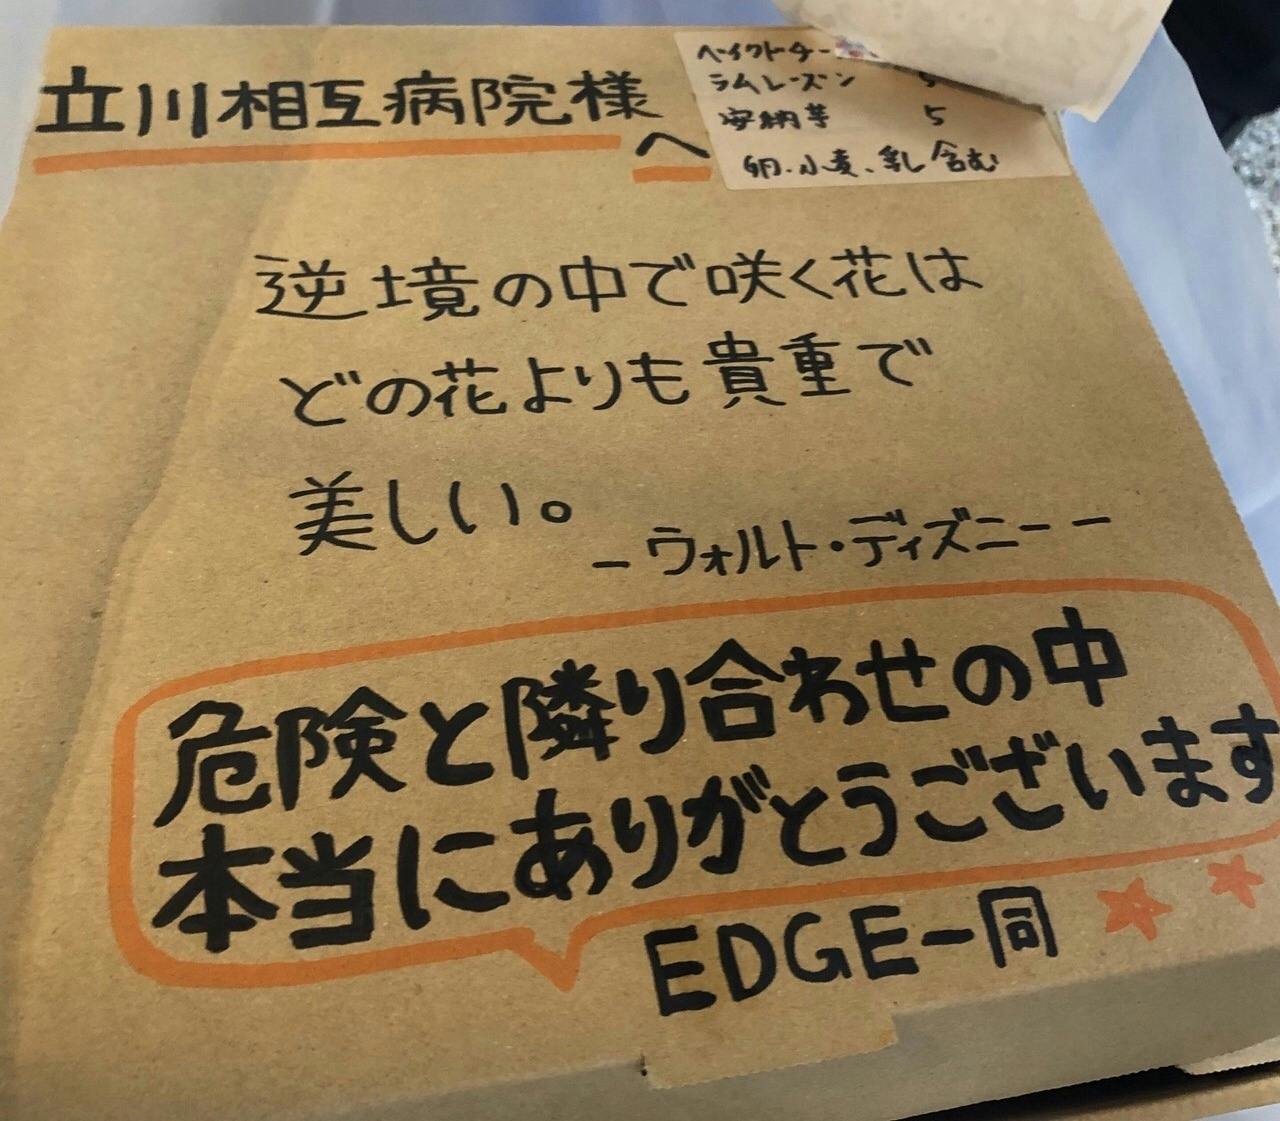 立川相互病院様へ
ベイクドチー
ラムレーズン 5
安納芋 5
卵、小麦、乳含む
逆境の中で咲く花は
どの花よりも貴重で
美しい。
－ウォルト・ディズニー－
危険と隣り合わせの中
本当にありがとうございます
EDGE一同